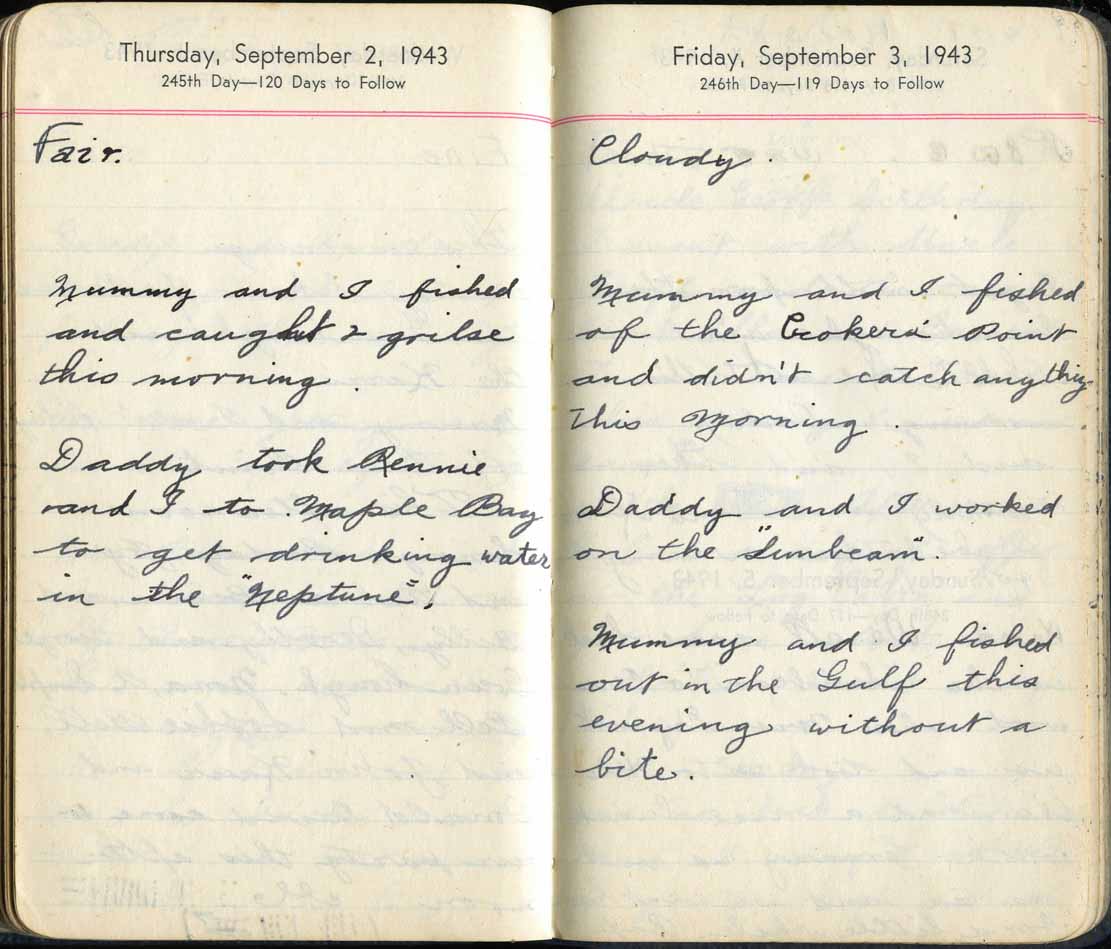 Thursday, September 2, 1943
245th Day—120 Days to Follow
Fair.
Mummy and I fished
and caught 2 grilse
this morning.
Daddy took Rennie
and I to Maple Bay
to get drinking water
in the "Neptune".
Friday, September 3, 1943
246th Day—119 Days to Follow
Cloudy.
Mummy and I fished
of the Crokers' Point
and didn't catch anything
this Morning.
Daddy and I worked
on the "Sunbeam".
Mummy and I fished
out in the Gulf this
evening without a
bite.